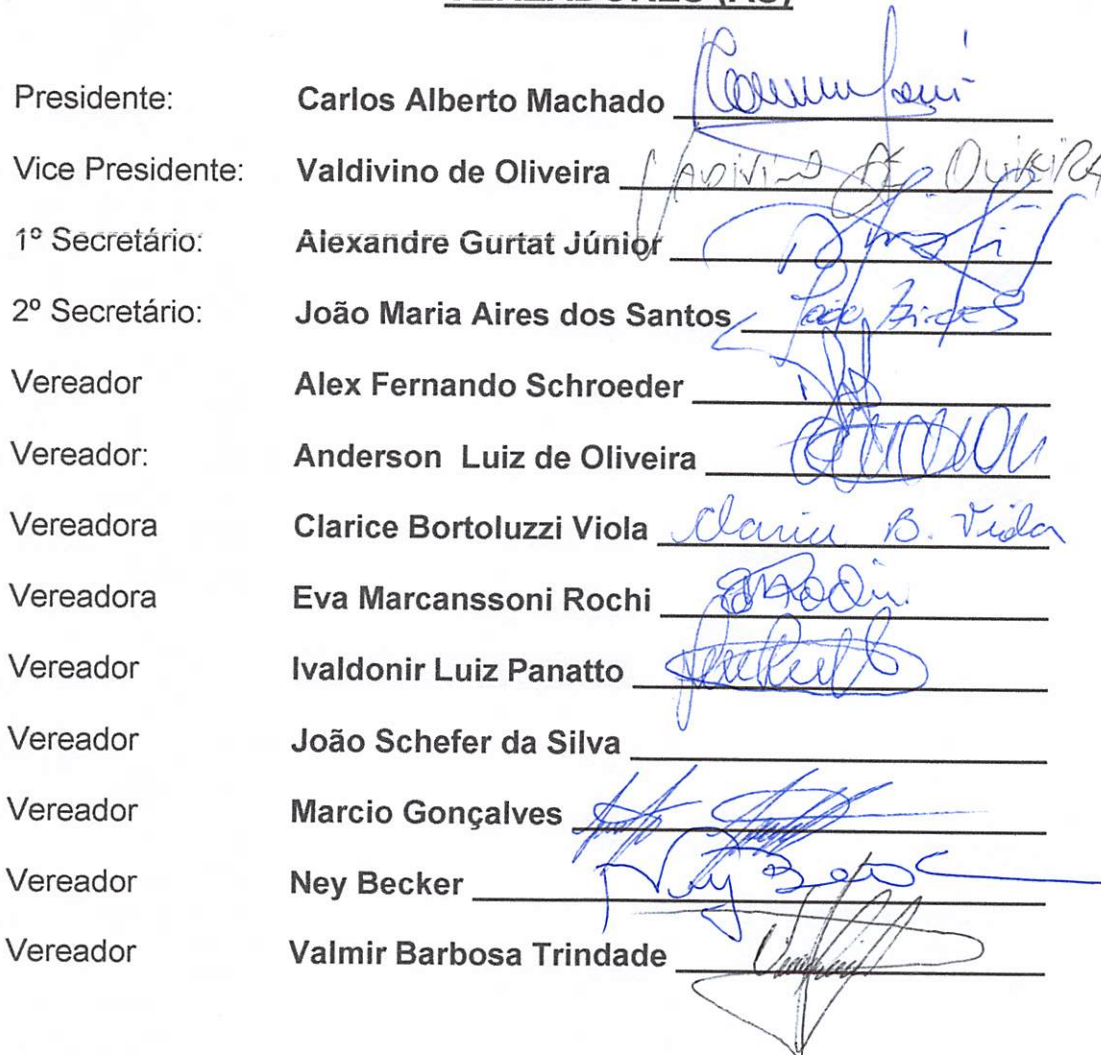 VEREADORES (AS)
Presidente: Carlos Alberto Machado
Vice Presidente: Valdivino de Oliveira Valdivino de Oliveira
1º Secretário: Alexandre Gurtat Júnior
2º Secretário: João Maria Aires dos Santos João Aires
Vereador Alex Fernando Schroeder
Vereador: Anderson Luiz de Oliveira
Vereadora Clarice Bortoluzzi Viola Clarice B. Viola
Vereadora Eva Marcanssoni Rochi
Vereador Ivaldonir Luiz Panatto
Vereador João Schefer da Silva
Vereador Marcio Gonçalves
Vereador Ney Becker Ney
Vereador Valmir Barbosa Trindade